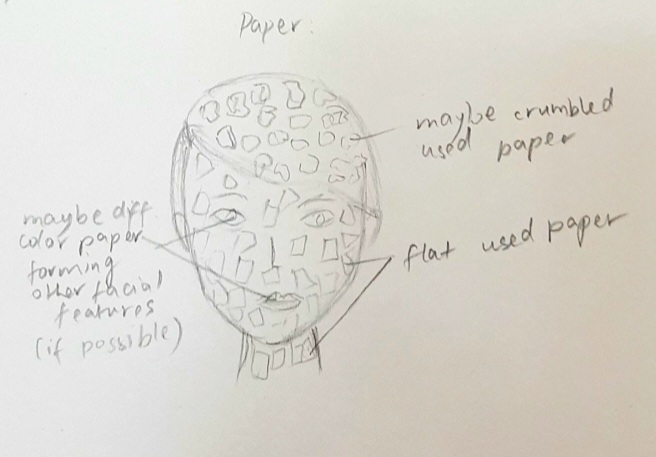 Paper:
maybe crumbled
used paper
maybe diff.
color paper
forming
other facial
features
(if possible)
flat used paper